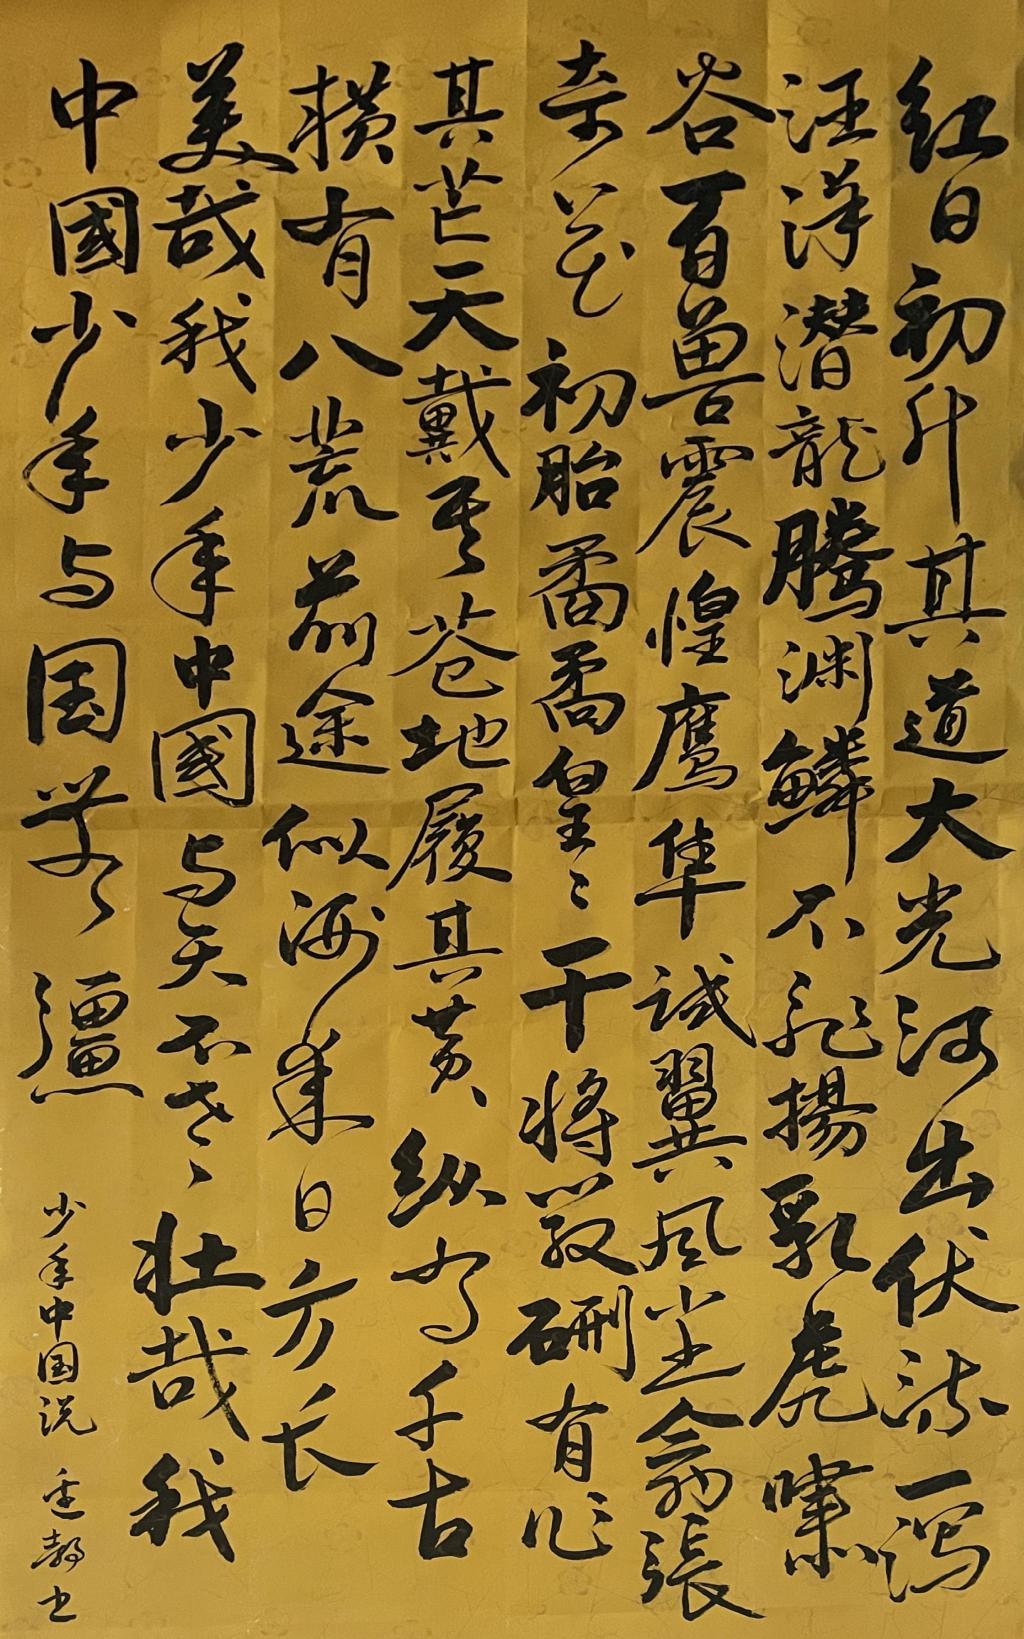 红日初升其道大光河出伏流一泻
汪洋潜龙腾渊鳞爪飞揚乳虎啸
谷百兽震惶鹰隼試翼风尘翕張
奇花初胎矞矞皇皇干将发硎有作
其芒天戴其苍地履其黄纵有千古
横有八荒前途似海来日方长
美哉我少年中國与天不老壮哉我
中國少年与国无疆
少年中国说 书